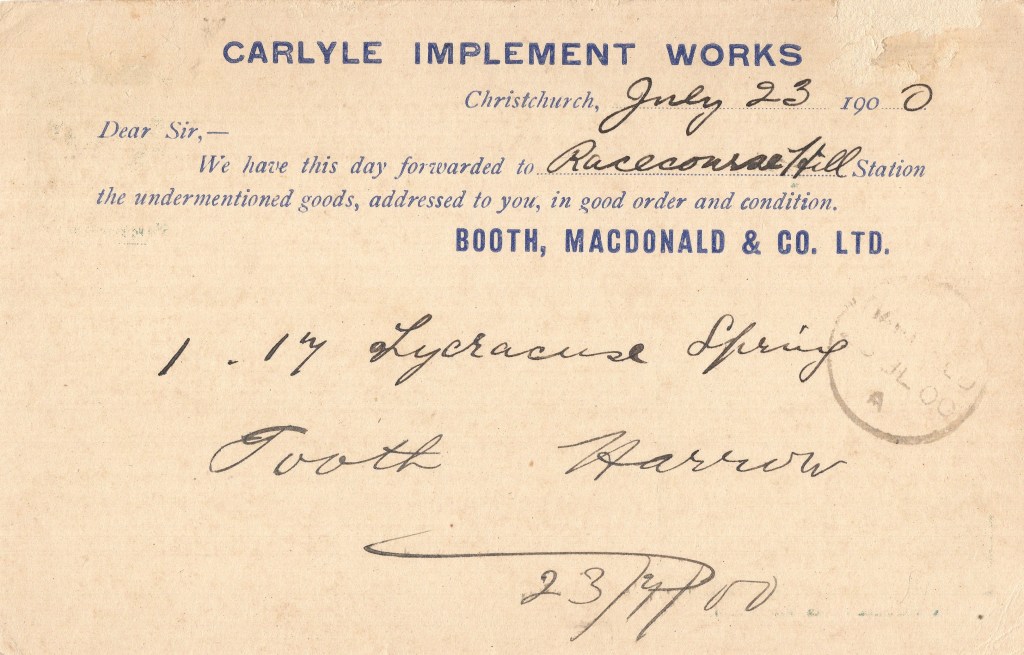 CARLYLE IMPLEMENT WORKS
Christchurch, July 23 1900
Dear Sir,—
We have this day forwarded to Racecourse Hill Station
the undermentioned goods, addressed to you, in good order and condition.
BOOTH, MACDONALD & CO. LTD.
1 . 17 Sycracuse Spring
Tooth Harrow
23/7/00
JL 00
A